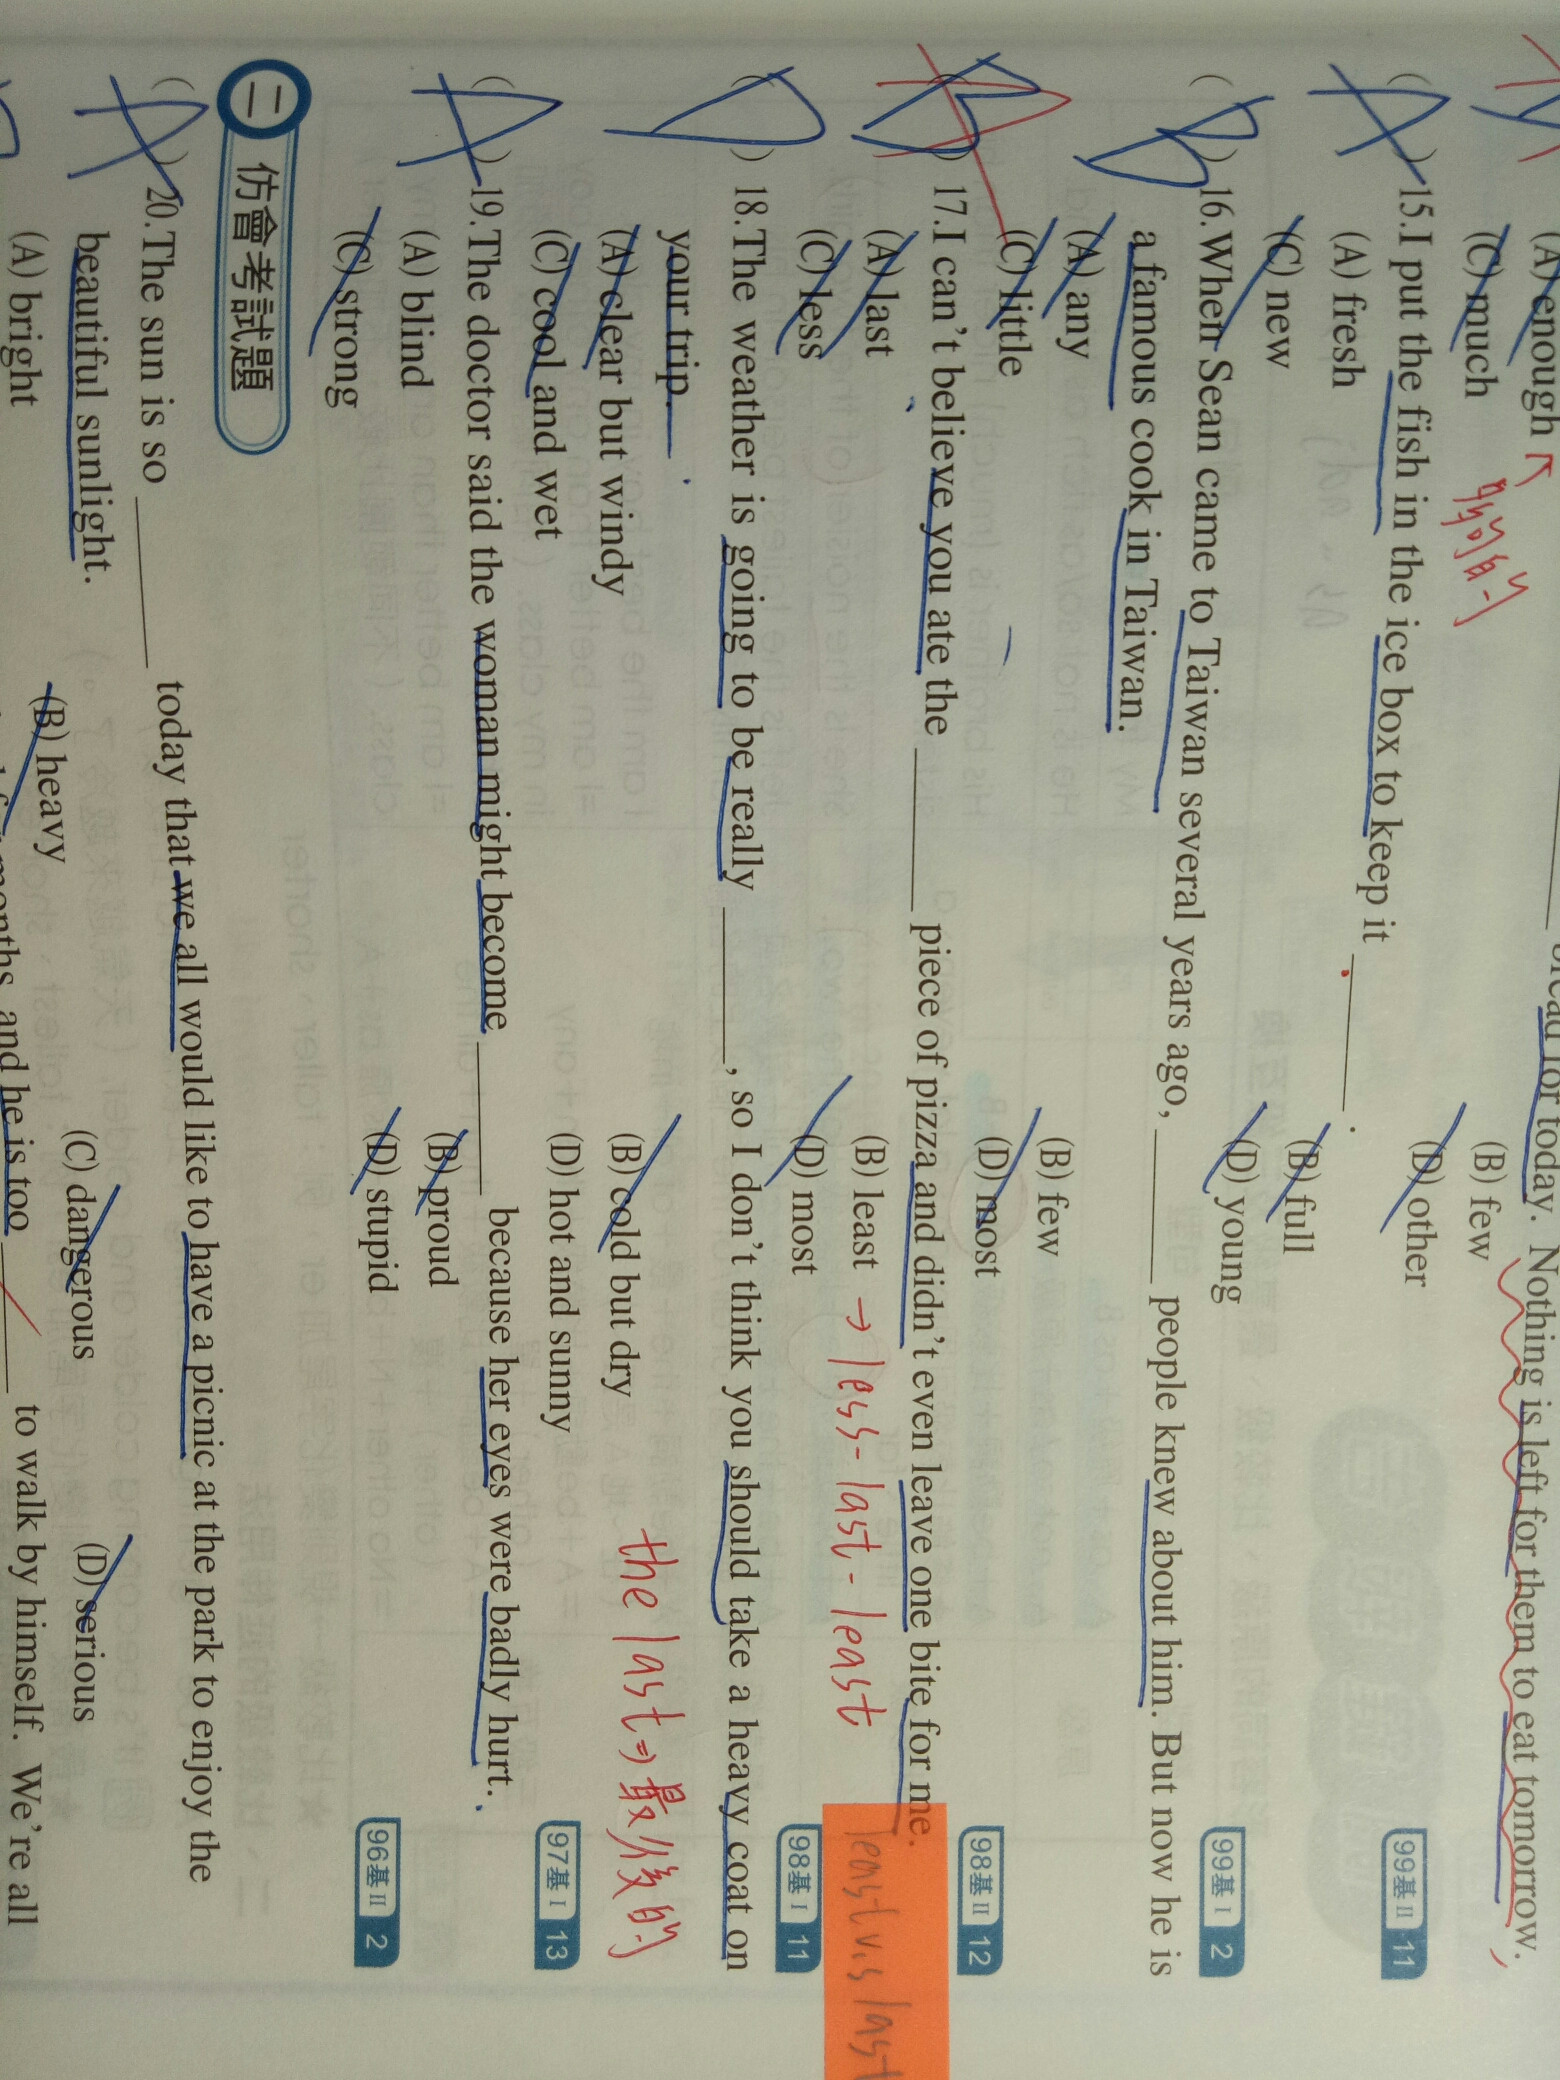 bread for today. Nothing is left for them to eat tomorrow.
(A) enough (B) few
(C) much (D) other
99基II 11
A
( ) 15. I put the fish in the ice box to keep it ______.
(A) fresh (B) full
(C) new (D) young
99基I 2
B
( ) 16. When Sean came to Taiwan several years ago, ______ people knew about him. But now he is
a famous cook in Taiwan.
(A) any (B) few
(C) little (D) most
98基II 12
B A
( ) 17. I can't believe you ate the ______ piece of pizza and didn't even leave one bite for me.
(A) last (B) least → less - last - least
least v.s last
(C) less (D) most
98基I 11
D
( ) 18. The weather is going to be really ______, so I don't think you should take a heavy coat on
your trip.
(A) clear but windy (B) cold but dry
the last => 最後的
(C) cool and wet (D) hot and sunny
97基I 13
A
( ) 19. The doctor said the woman might become ______ because her eyes were badly hurt.
(A) blind (B) proud
(C) strong (D) stupid
96基II 2
二 仿會考試題
A
( ) 20. The sun is so ______ today that we all would like to have a picnic at the park to enjoy the
beautiful sunlight.
(A) bright (B) heavy (C) dangerous (D) serious
months, and he is too ______ to walk by himself. We're all